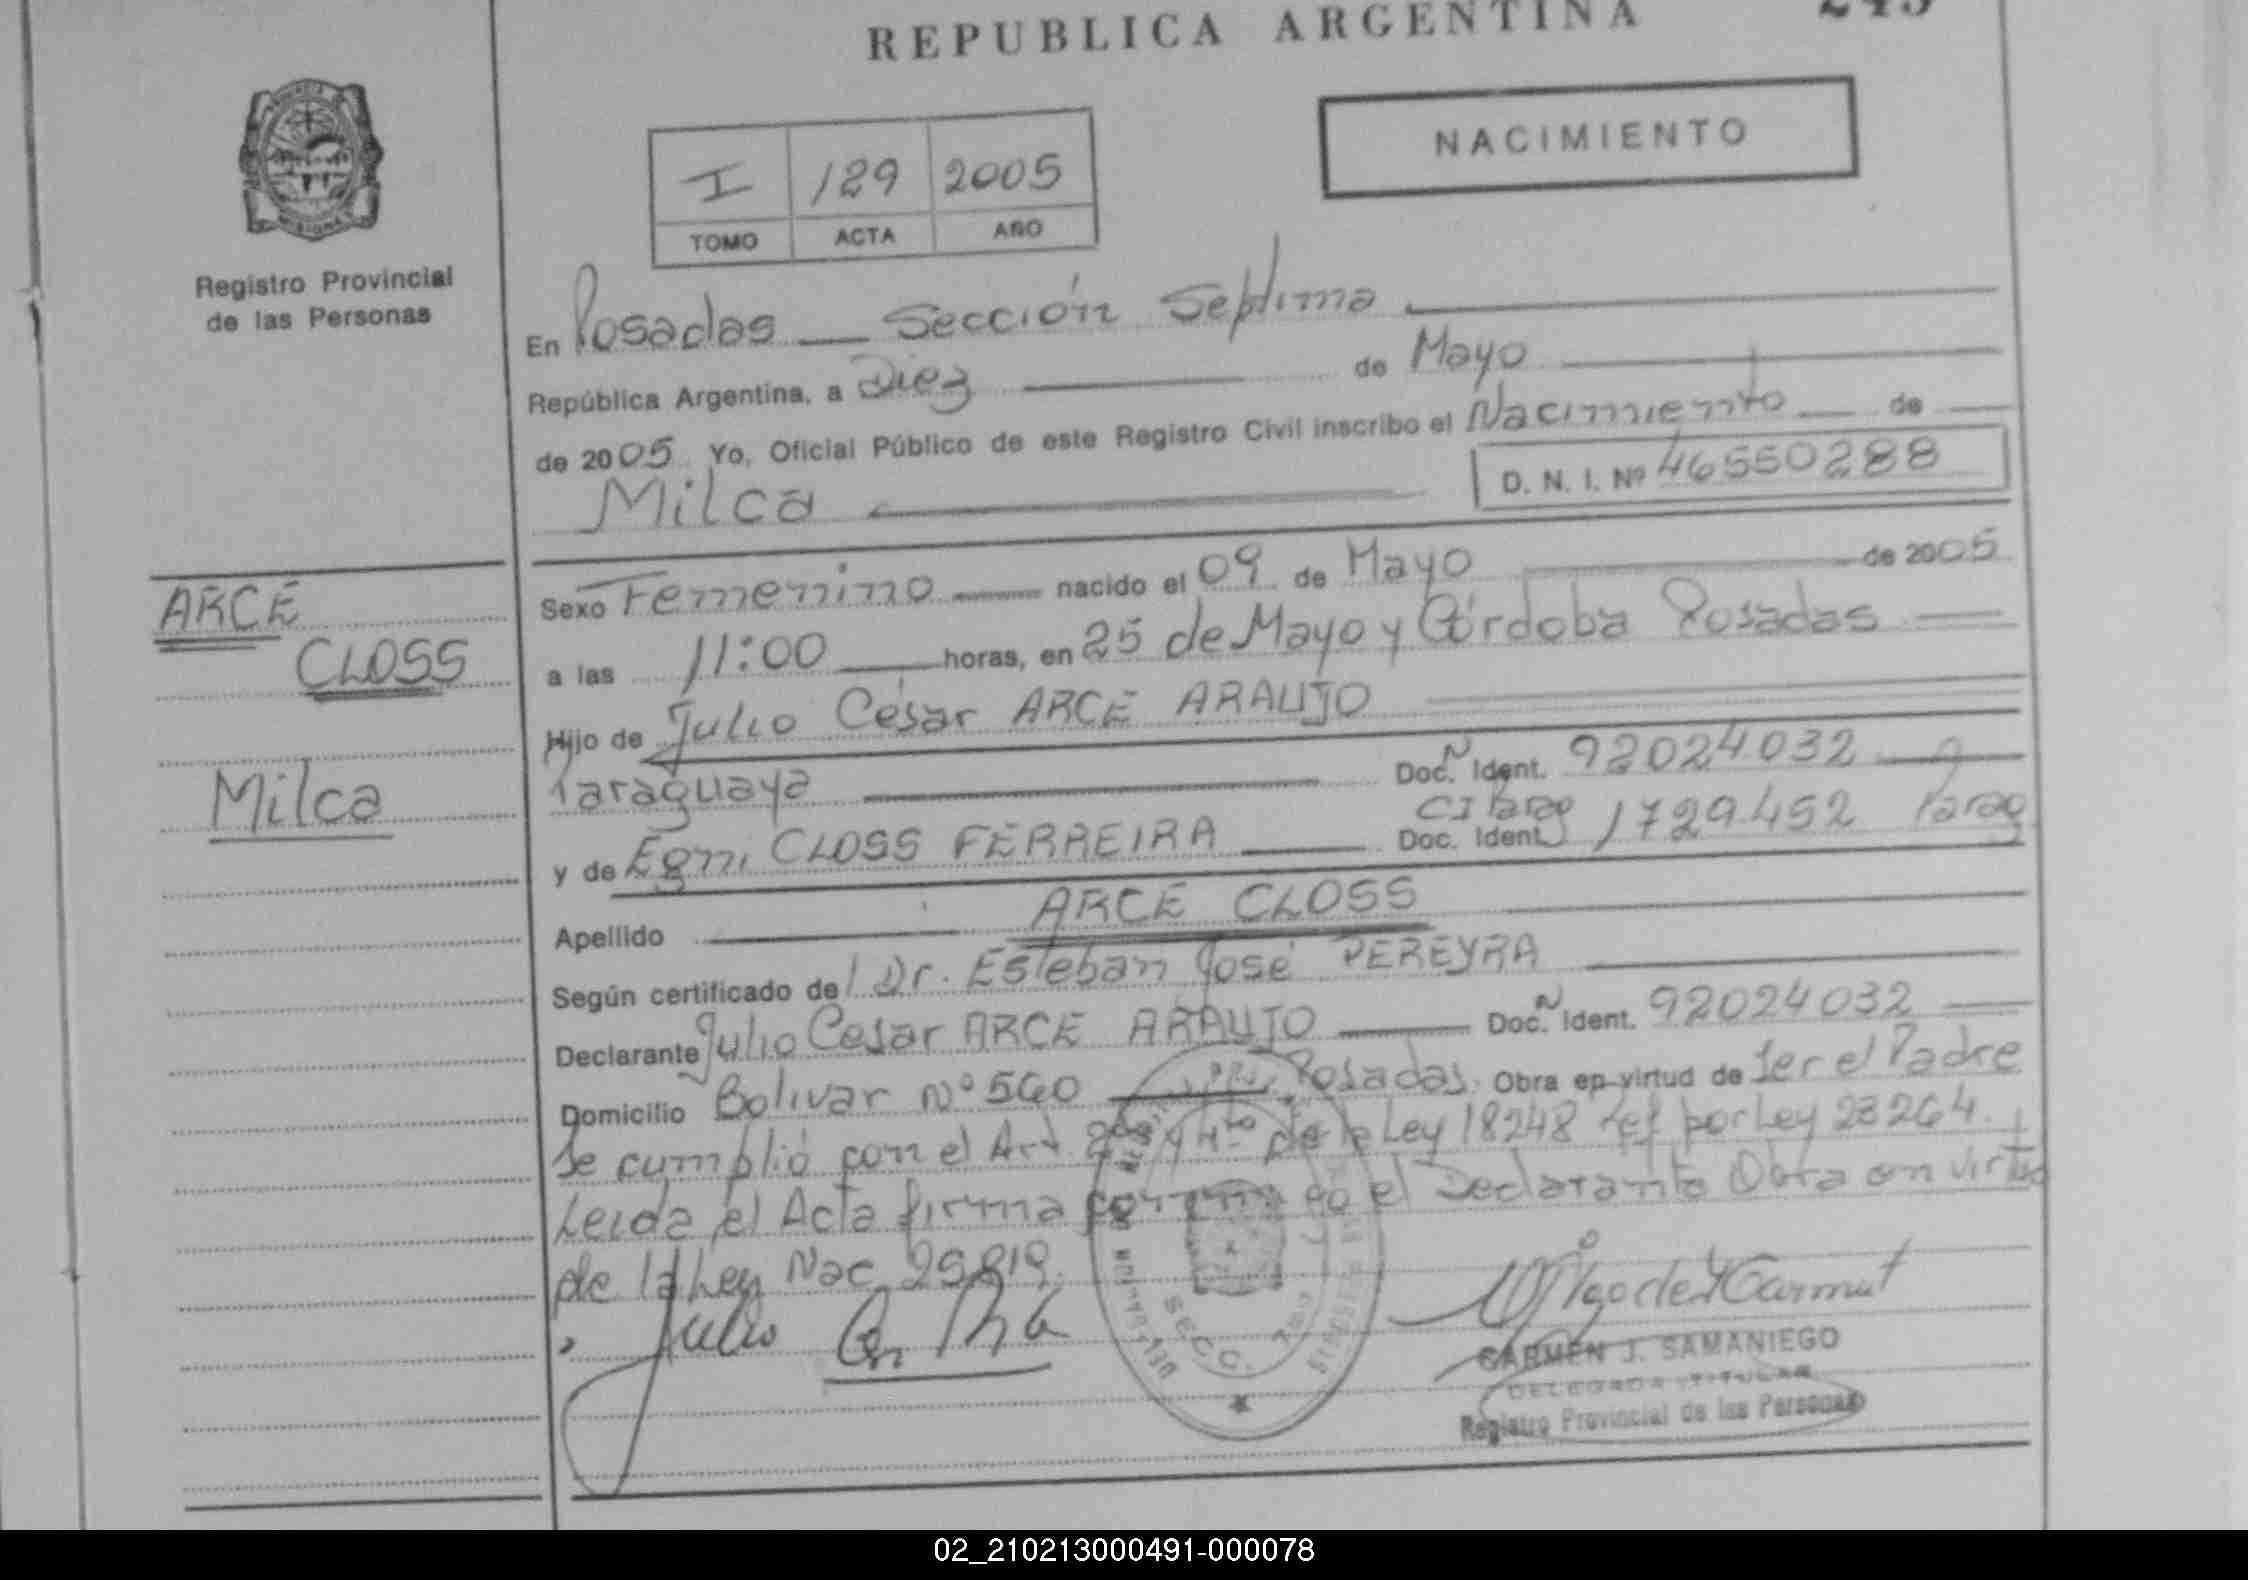 REPUBLICA ARGENTINA
NACIMIENTO
I 129 2005
TOMO ACTA AÑO
Registro Provincial
de las Personas
En Posadas Sección Septima
República Argentina, a Diez de Mayo
de 2005 Yo, Oficial Público de este Registro Civil inscribo el Nacimiento de
Milca D. N. I. Nº 46550288
ARCE
CLOSS
Milca
Sexo Femenino nacido el 09 de Mayo de 2005
a las 11:00 horas, en 25 de Mayo y Córdoba Posadas
Hijo de Julio César ARCE ARAUJO
Paraguaya Doc. Ident. 92024.032
CI Parag
y de Egni CLOSS FERREIRA Doc. Ident. 1729.452 Parag
Apellido ARCE CLOSS
Según certificado del Dr. Esteban José PEREYRA
Declarante Julio Cesar ARCE ARAUJO Doc. Ident. 92024032
Domicilio Bolivar Nº 560 Posadas. Obra en virtud de ser el Padre
Se cumplió con el Art. de la Ley 18248 ref por Ley 23264.
Leida el Acta firma conmigo el Declarante Obra en virtud
de la Ley Nac 25819.
Julio
SECC. 7ma
CARMEN J. SAMANIEGO
DELEGADA TITULAR
Registro Provincial de las Personas
02_210213000491-000078